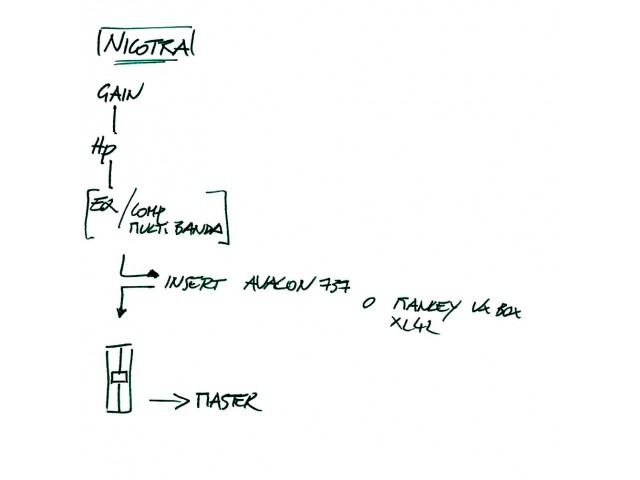 NICOTRA
GAIN
Hp
[EQ / COMP
MULTI BANDA]
INSERT AVALON 737
O MANLEY VOX BOX
XL42
MASTER